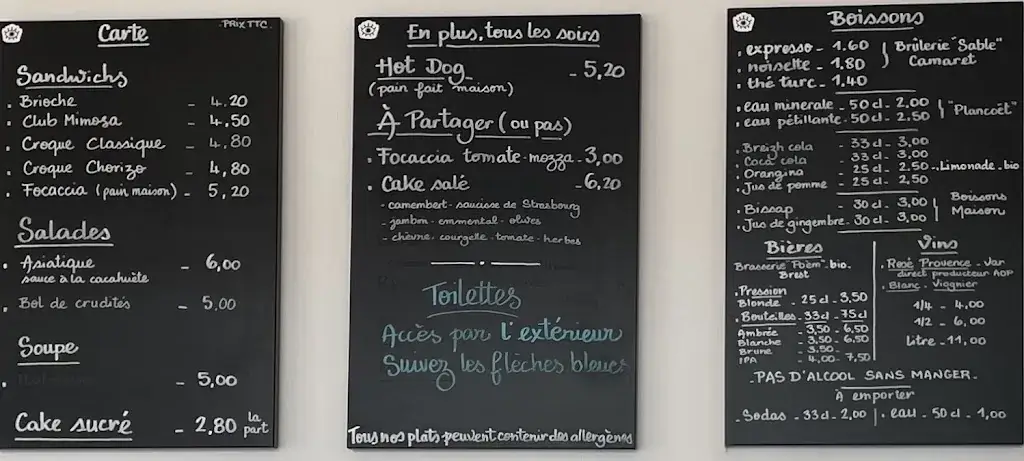 Carte
PRIX TTC.
Sandwichs
. Brioche - 4.20
. Club Mimosa - 4,50
. Croque Classique - 4,80
. Croque Chorizo - 4,80
. Focaccia (pain maison) - 5,20
Salades
. Asiatique - 6,00
sauce à la cacahuète
. Bol de crudités - 5,00
Soupe
. - 5,00
Cake sucré - 2.80 la part
En plus, tous les soirs
Hot Dog - 5,20
(pain fait maison)
À Partager (ou pas)
. Focaccia tomate-mozza - 3,00
. Cake salé - 6,20
- camembert - saucisse de Strasbourg
- jambon - emmental - olives
- chèvre - courgette - tomate - herbes
Toilettes
Accès par l'extérieur
Suivez les flèches bleues
Tous nos plats peuvent contenir des allergènes
Boissons
. expresso - 1.60
. noisette - 1,80
. thé turc - 1,40
Brûlerie "Sable"
Camaret
. eau minerale - 50 cl - 2,00
. eau pétillante - 50 cl - 2.50
"Plancoët"
. Breizh cola - 33 cl - 3,00
. Coca cola - 33 cl - 3,00
. Orangina - 25 cl - 2,50
. Jus de pomme - 25 cl - 2,50
. Limonade - bio
. Bissap - 30 cl - 3,00
. Jus de gingembre - 30 cl - 3,00
Boissons
Maison
Bières
Brasserie "Poèm" - bio.
Brest
. Pression
Blonde - 25 cl - 3,50
. Bouteilles - 33cl - 75cl
Ambrée - 3,50 - 6,50
Blanche - 3,50 - 6,50
Brune - 3,50 -
IPA - 4,00 - 7,50
Vins
. Rosé Provence - Var
direct producteur AOP
. Blanc - Viognier
1/4 - 4,00
1/2 - 6,00
Litre - 11,00
- PAS D'ALCOOL SANS MANGER -
À emporter
- Sodas - 33cl - 2,00 | . eau - 50 cl - 1,00